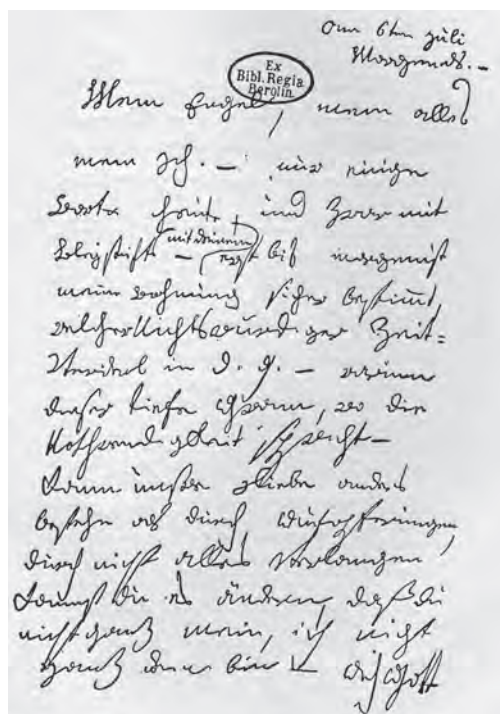 am 6ten Juli
Morgends. —
Ex
Bibl. Regia
Berolin.
Mein Engel, mein alles
mein Ich. — nur einige
Worte heute, und zwar mit
Bleystift — (mit deinem)
erst bis morgen ist
meine Wohnung sicher bestimmt,
welcher Nichtswürdiger Zeit=
Verderb in d. g. — warum
dieser tiefe Gram, wo die
Nothwendigkeit spricht —
Kann unsre Liebe anders
bestehn als durch Aufopferungen,
durch nicht alles verlangen,
kannst du es ändern, daß du
nicht ganz mein, ich nicht
ganz dein bin — Ach Gott